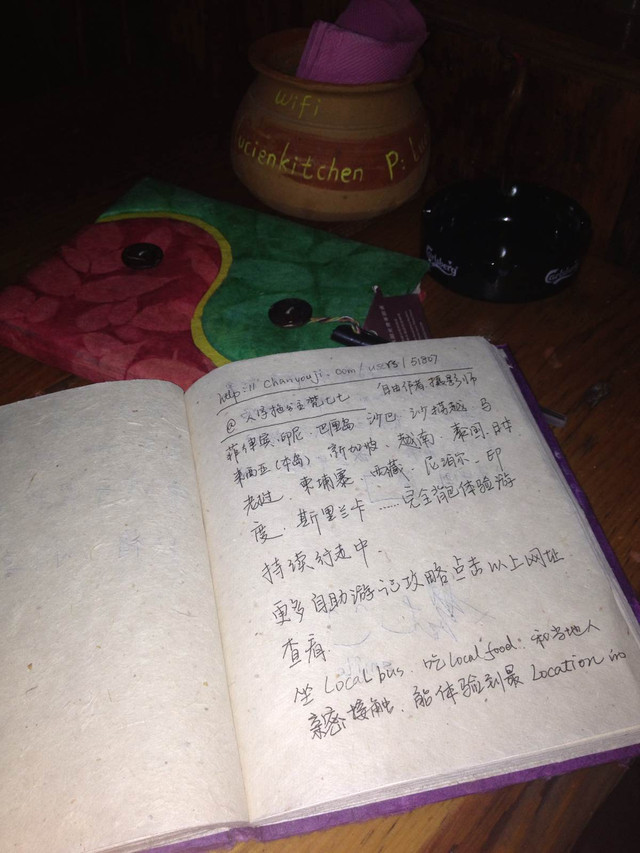 wifi
ucienkitchen P: Lu
Carlsberg
Carlsberg
help:// chanyouji.com/users/51807
@ 人字拖公主梵七七 自由作者 摄影师
菲律宾、印尼、巴厘岛、沙巴、沙捞越、马
来西亚（本岛）新加坡、越南、泰国、日本
老挝、柬埔寨、西藏、尼泊尔、印
度、斯里兰卡 ……完全背包体验游
持续行走中、
更多自助游记攻略点击以上网址
查看
坐 Local bus、吃 local food、和当地人
亲密接触、能体验到最 Location in